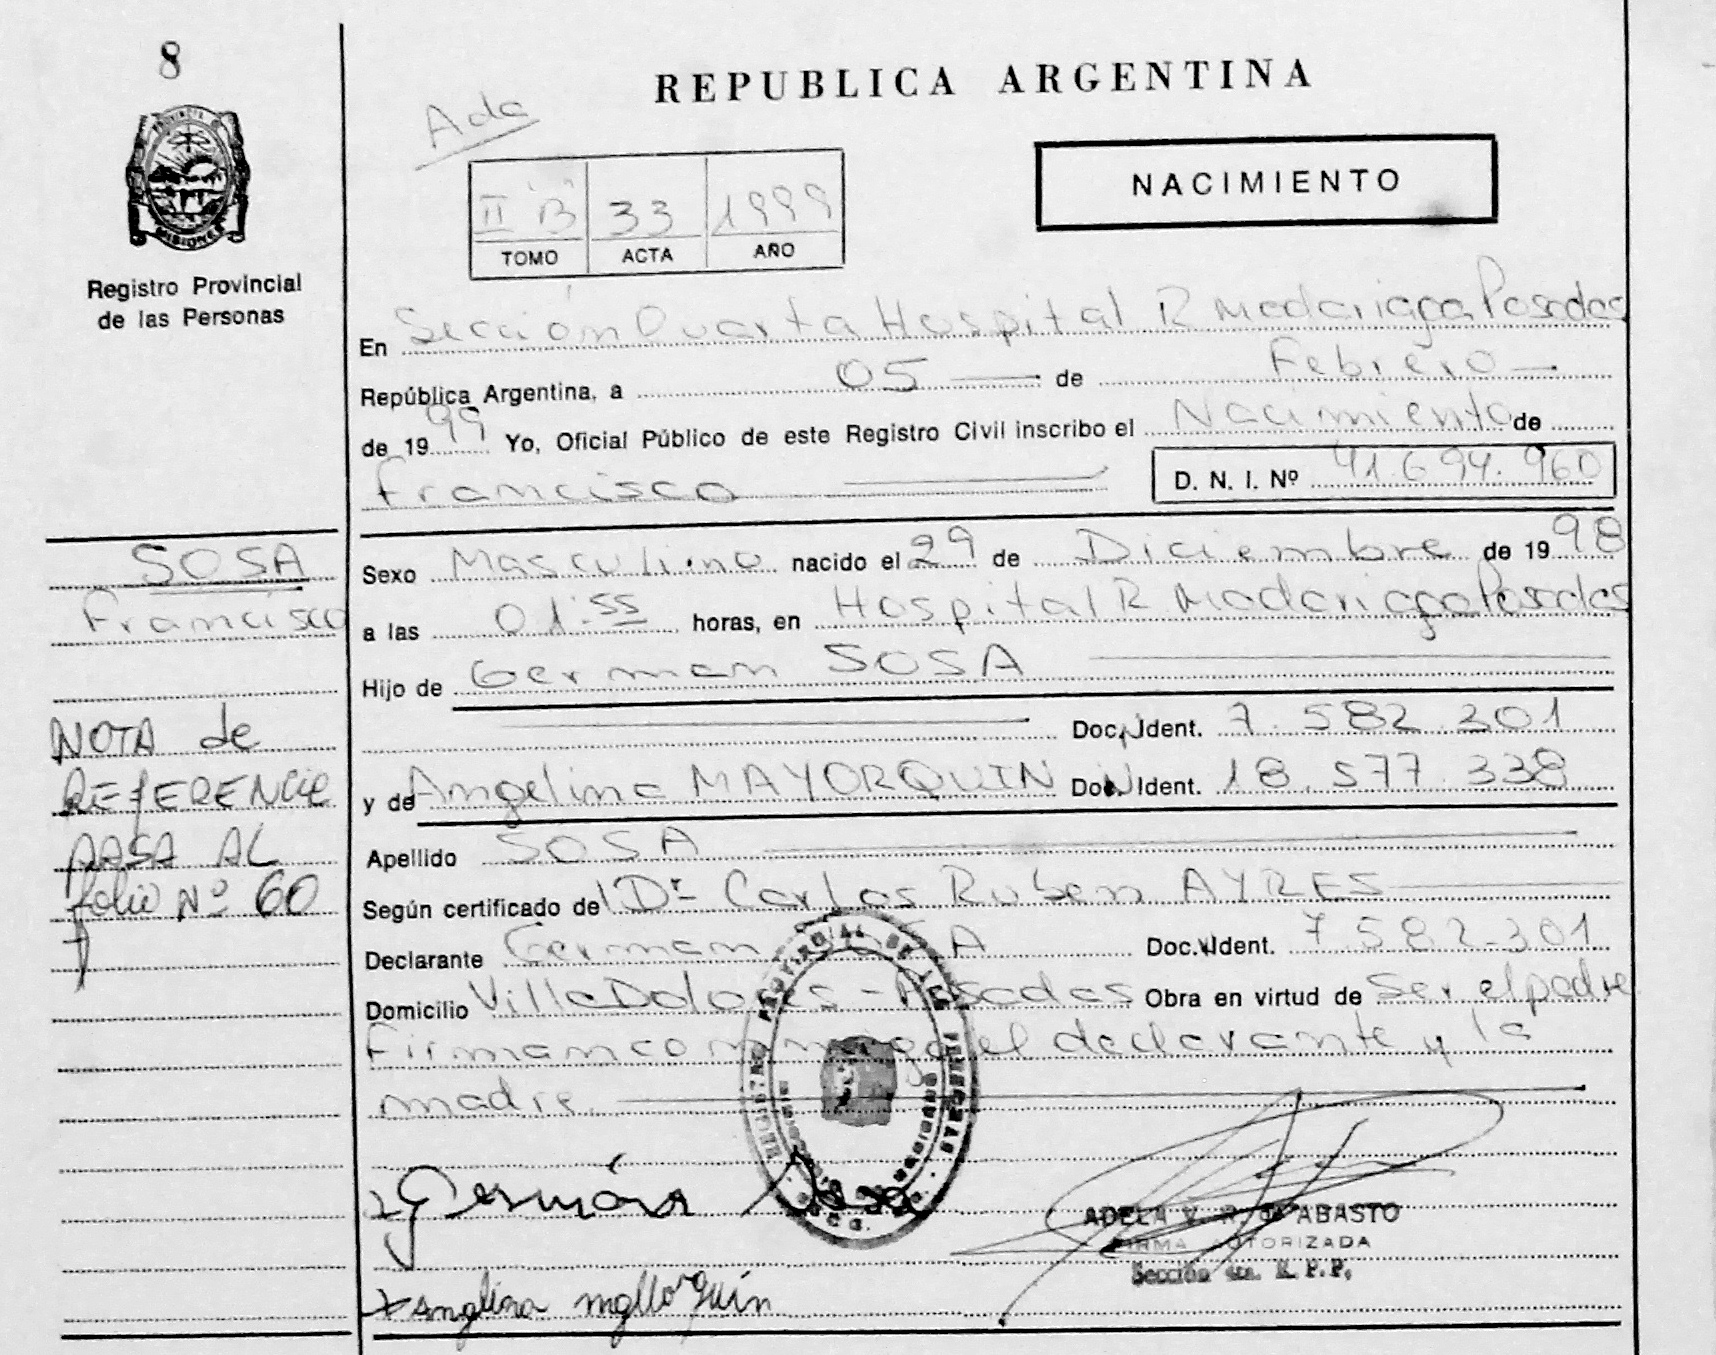 8
REPUBLICA ARGENTINA
Ada
PROVINCIA DE
MISIONES
Registro Provincial
de las Personas
II "B" 33 1999
TOMO ACTA AÑO
NACIMIENTO
En Sección Cuarta Hospital R Madariaga Posadas
República Argentina, a 05 de Febrero
de 1999 Yo, Oficial Público de este Registro Civil inscribo el Nacimiento de
Francisco D. N. I. Nº 41.694.960
SOSA
Francisco
Sexo Masculino nacido el 29 de Diciembre de 1998
a las 01:55 horas, en Hospital R Madariaga Posadas
Hijo de German SOSA
Doc. Ident. 7.582.301
y de Angelina MAYORQUIN Doc. Ident. 18.577.338
NOTA de
REFERENCIA
PASA AL
folio Nº 60
Apellido SOSA
Según certificado del Dr Carlos Ruben AYRES
Declarante German SOSA Doc. Ident. 7.582.301
Domicilio Villa Dolores - Posadas Obra en virtud de Ser el padre
Firman conmigo el declarante y la
madre.
Germán Sosa
ADELA V. R. de ABASTO
FIRMA AUTORIZADA
Sección 4ta. R. P. P.
Anglina mgllorguín